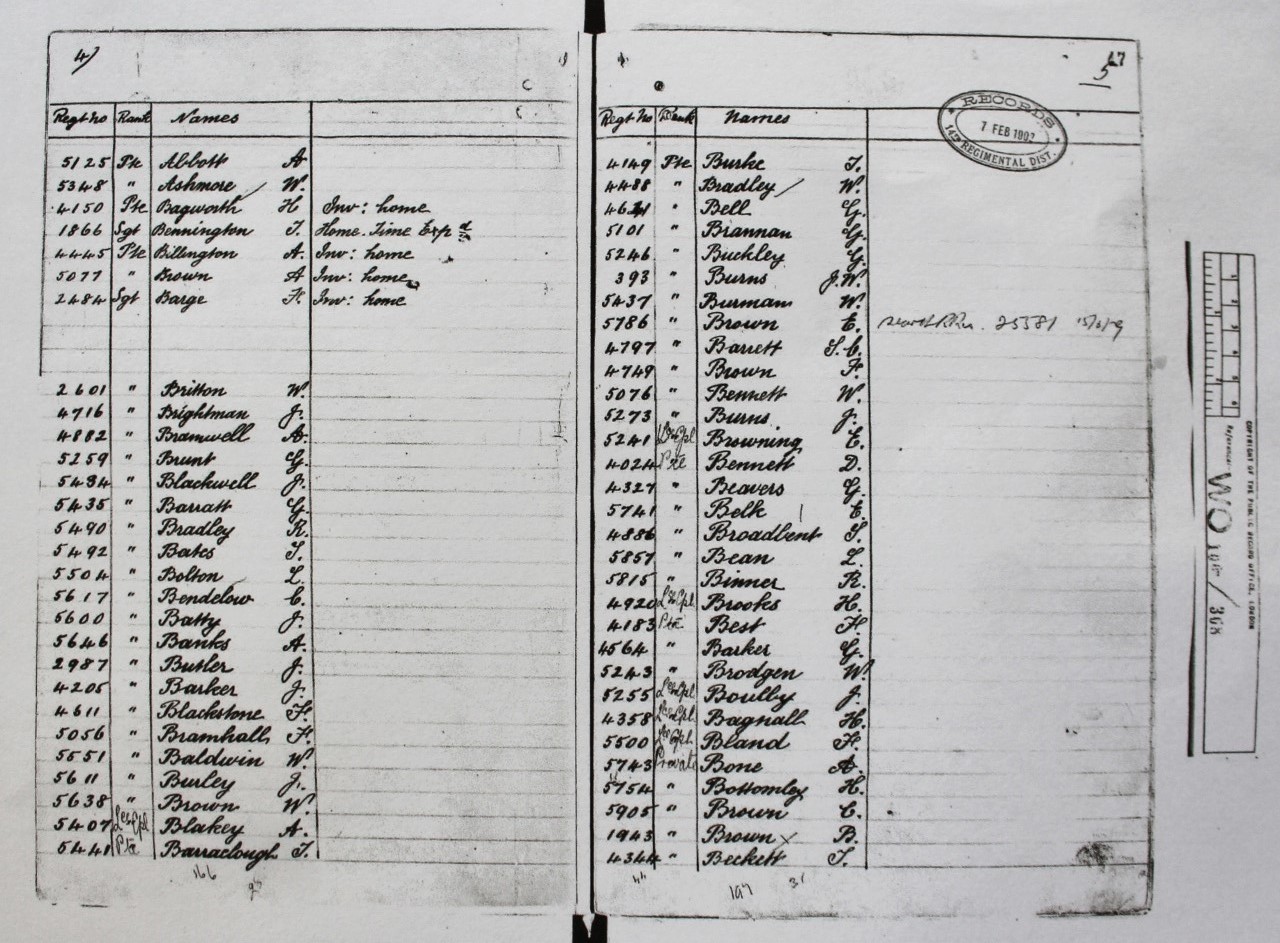 4)
Regt no Rank Names
5125 Pte Abbott A
5348 " Ashmore W.
4150 Pte Bagworth H Inv: home
1866 Sgt Bennington J. Home. Time Expd
4445 Pte Billington A. Inv: home
5077 " Brown A Inv: home
2484 Sgt Barge F. Inv: home
2601 " Britton W.
4716 " Brightman J.
4882 " Bramwell A.
5259 " Brunt G.
5484 " Blackwell J.
5435 " Barratt G.
5490 " Bradley R.
5492 " Bates T.
5504 " Bolton L.
5617 " Bendelow C.
5600 " Batty J.
5646 " Banks A.
2987 " Butler J.
4205 " Barker J.
4611 " Blackstone F.
5056 " Bramhall F.
5551 " Baldwin W.
5611 " Burley J.
5638 " Brown W.
5407 Lce Cpl Blakey A.
5441 Pte Barraclough T.
166
97
5
Regt No Rank Names
RECORDS
7 FEB 1902
14TH REGIMENTAL DIST.
4149 Pte Burke T.
4488 " Bradley W.
" Bell G.
5101 " Brannan G.
5246 " Buckley G.
393 " Burns J.W.
5437 " Burman W.
5786 " Brown E. 25381
4797 " Barrett S.C.
4749 " Brown F.
5076 " Bennett W.
5273 " Burns J.
5241 Lce Cpl Browning E.
4024 Pte Bennett D.
4327 " Beavers G.
5741 " Belk E.
4886 " Broadbent S.
5857 " Bean L.
5815 " Binner R.
4920 Lce Cpl Brooks H.
4183 Pte Best F
4564 " Barker G.
5243 " Brodgen W.
5255 Lce Cpl Boulby J.
4358 Lce Cpl Bagnall H.
5500 Lce Cpl Bland F.
5743 Private Bone A.
5754 " Bottomley H.
5905 " Brown C.
1943 " Brown x B.
4344 " Beckett T.
44
197 31
COPYRIGHT OF THE PUBLIC RECORD OFFICE, LONDON
Reference:
WO 108/368